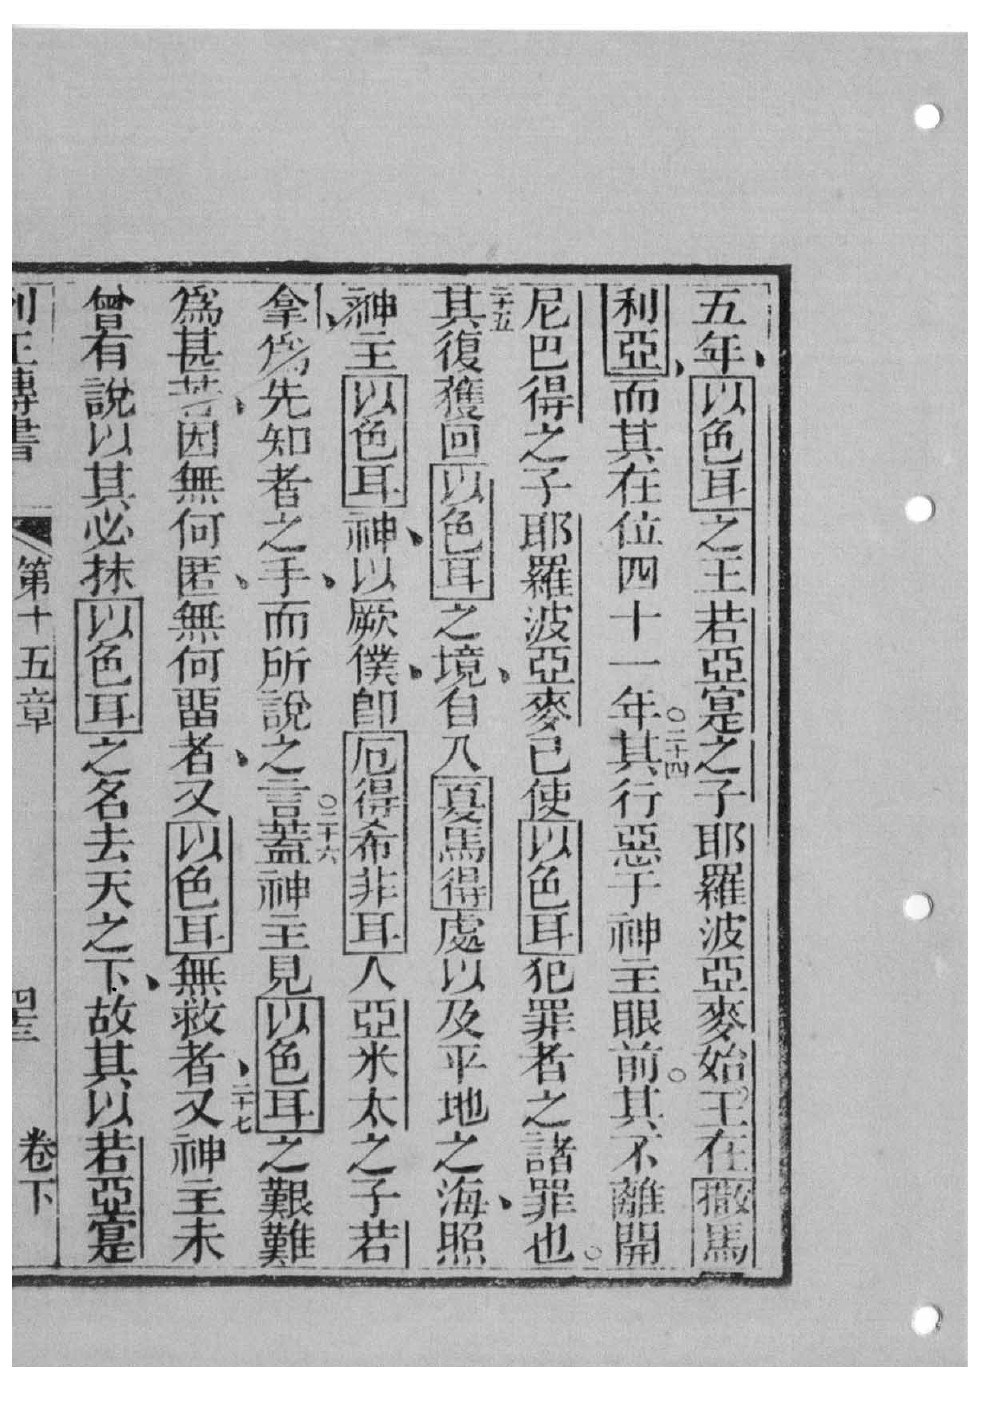 五年以色耳之王若亞寔之子耶羅波亞麥始王在撒馬
利亞而其在位四十一年○二十四其行惡于神主眼前○其不離開
尼巴得之子耶羅波亞麥已使以色耳犯罪者之諸罪也○
二十五其復獲回以色耳之境自入夏馬得處以及平地之海照
神主以色耳神以厥僕卽厄得希非耳人亞米太之子若
拿爲先知者之手而所說之言○二十六蓋神主見以色耳之艱難
爲甚苦因無何匿無何畱者又以色耳無救者二十七又神主未
曾有說以其必抹以色耳之名去天之下故其以若亞寔
列王傳書 第十五章 卷下